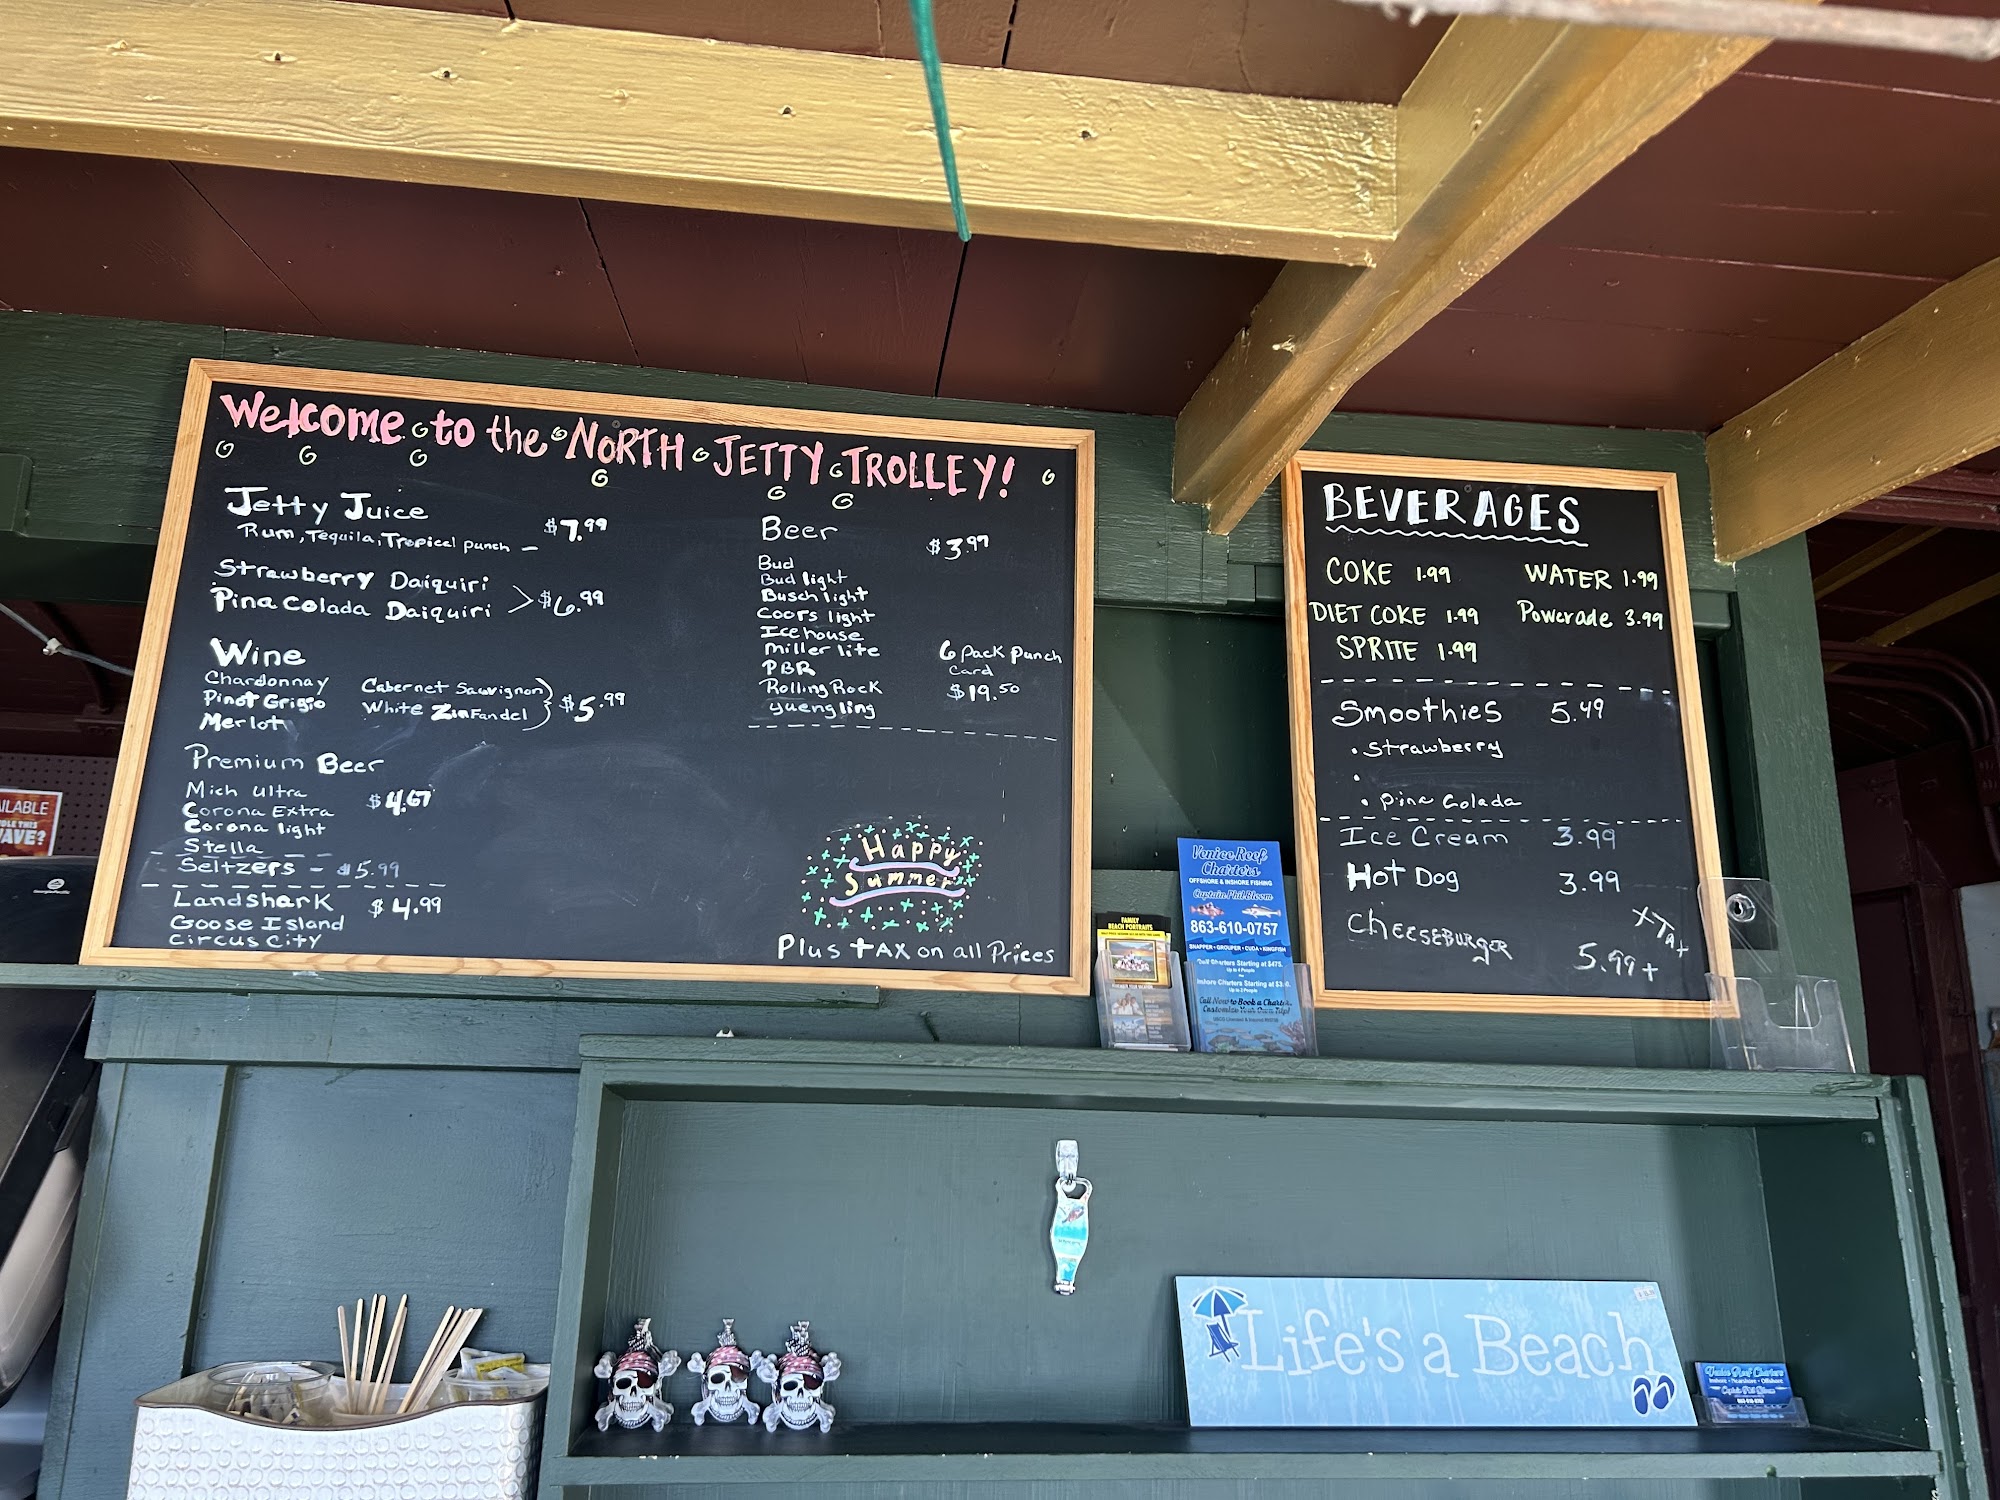 Welcome to the NORTH JETTY TROLLEY!
Jetty Juice
Rum, Tequila, Tropical punch – $7.99
Strawberry Daiquiri
Pina Colada Daiquiri > $6.99
Wine
Chardonnay
Pinot Grigio
Merlot
Cabernet Sauvignon
White Zinfandel
$5.99
Premium Beer
Mich ultra
$4.67
Corona Extra
Corona light
Stella
Seltzers - $5.99
Landshark
$4.99
Goose Island
Circus City
Beer
$3.99
Bud
Bud light
Busch light
Coors light
Icehouse
Miller lite
PBR
Rolling Rock
yuengling
6 Pack Punch
Card
$19.50
Happy
Summer
Plus tAX on all Prices
BEVERAGES
COKE 1.99
WATER 1.99
DIET COKE 1.99
Powerade 3.99
SPRITE 1.99
Smoothies 5.49
• Strawberry
•
• pina Colada
Ice Cream 3.99
Hot Dog 3.99
CheeseBURGeR
5.99+
FAMILY
BEACH PORTRAITS
Venice Reef
Charters
OFFSHORE & INSHORE FISHING
Captain Phil Bloom
863-610-0757
SNAPPER • GROUPER • CUDA • KINGFISH
Call Now to Book a Charter,
Customize Your Own Trip!
Life's a Beach
Venice Reef Charters
Inshore • Nearshore • Offshore
863-610-0757